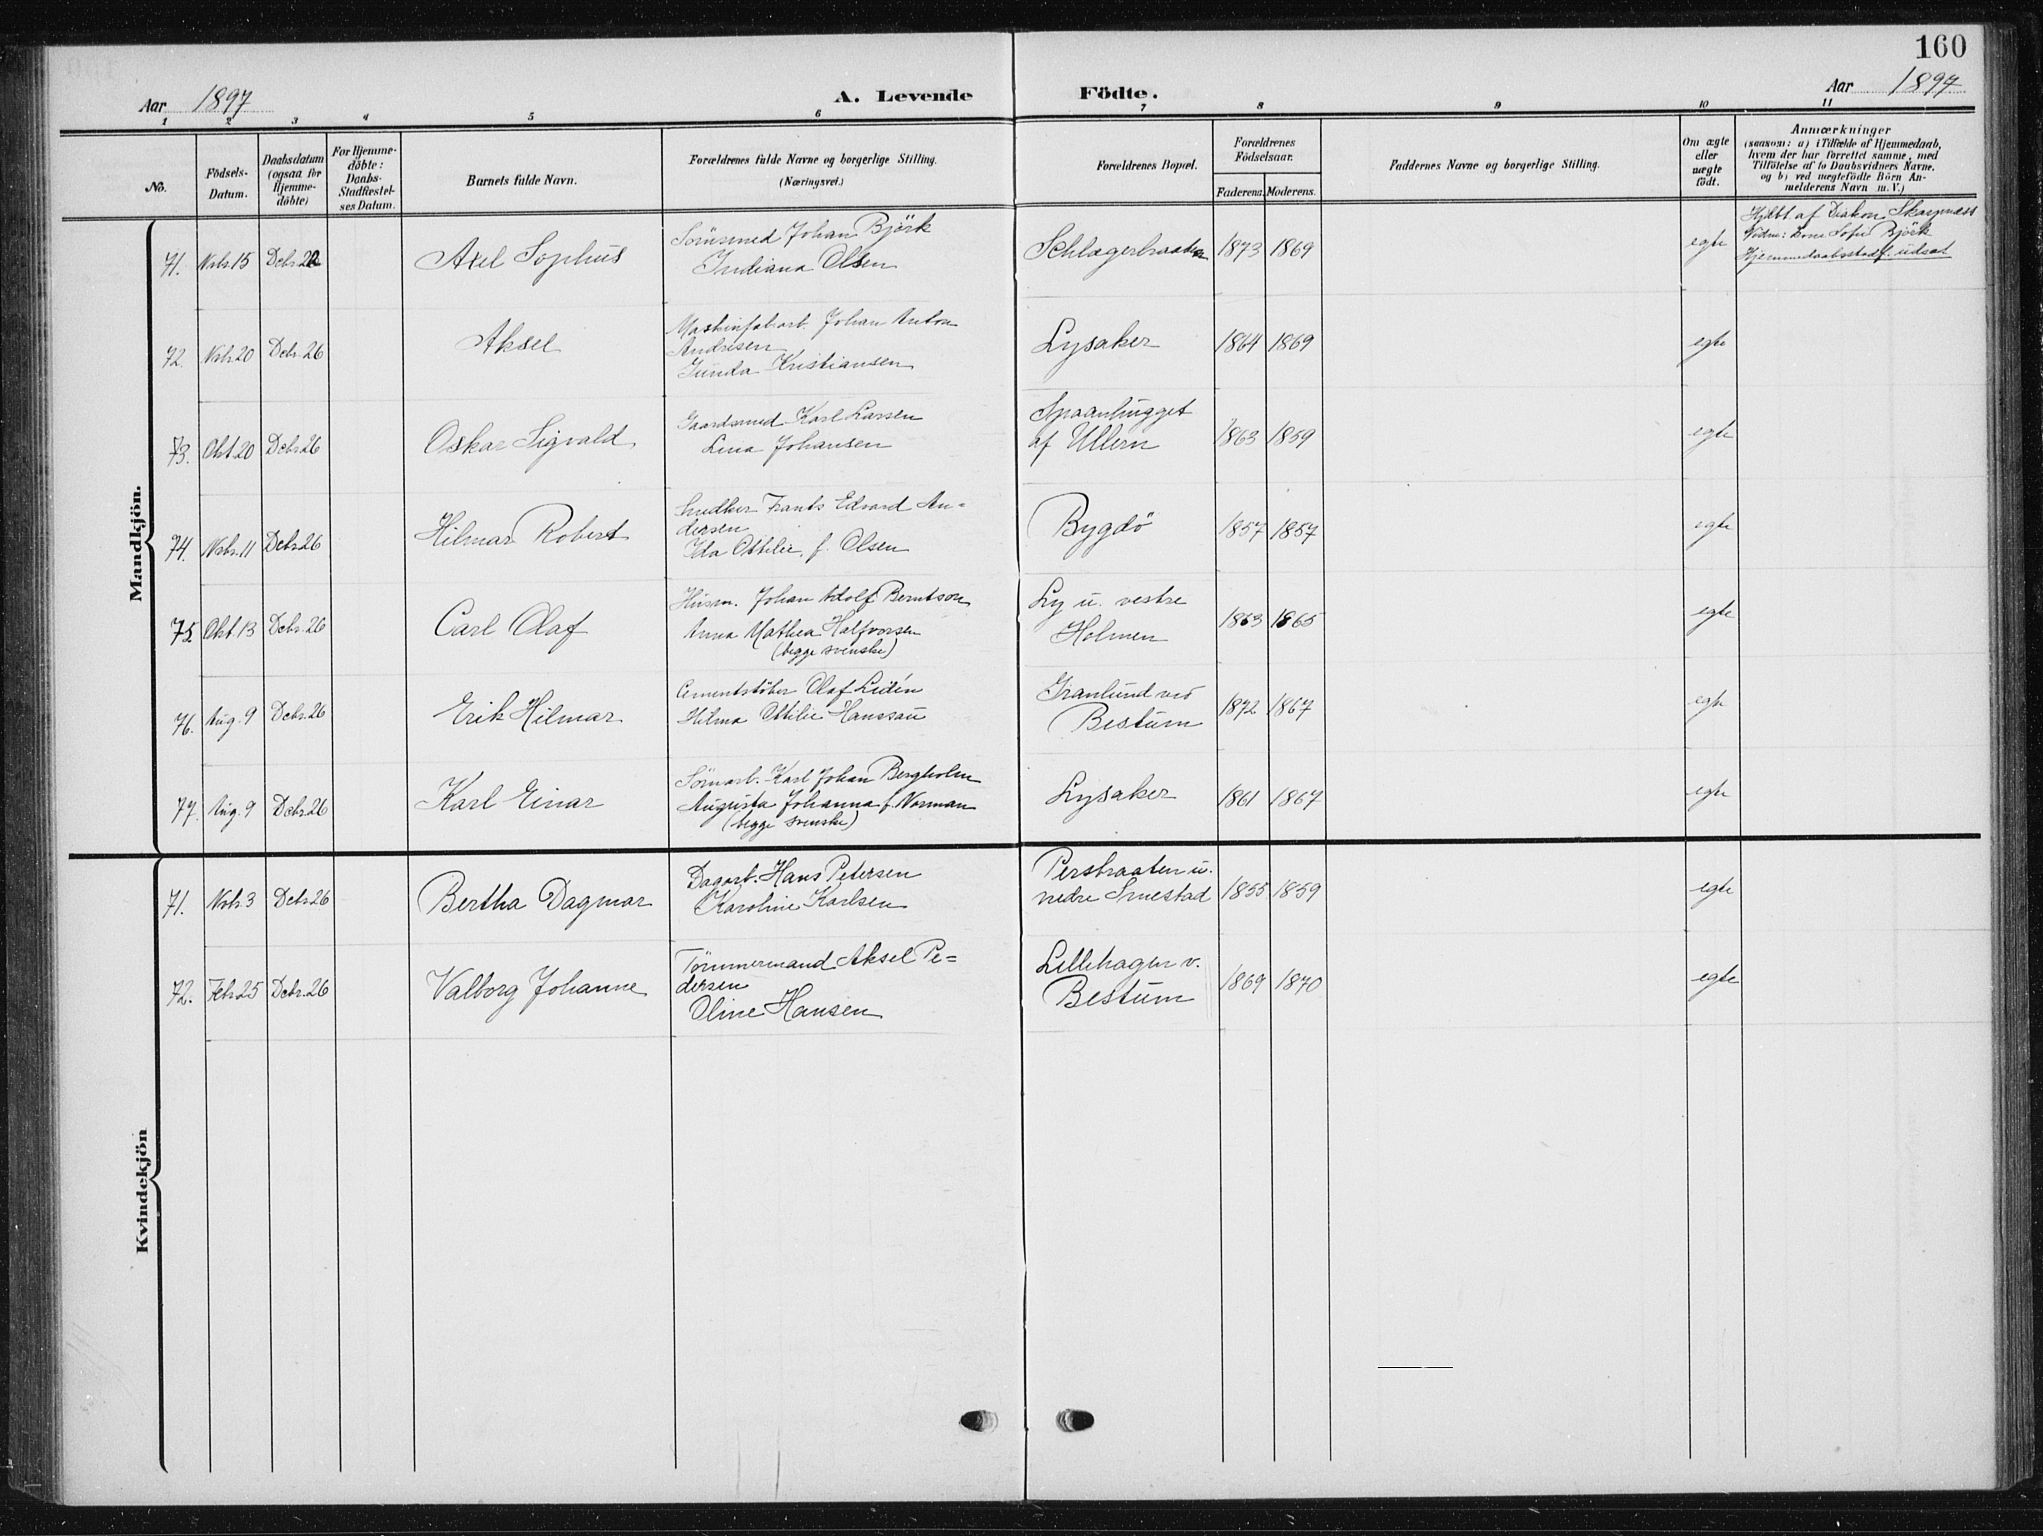 160
Aar 1897
A. Levende
Födte.
Aar 1897
1 2 3 4 5 6 7 8 9 10 11
No.
Födsels-
Datum.
Daabsdatum
(ogsaa for
Hjemme-
döbte)
For Hjemme-
döbte:
Daabs-
Stadfæstel-
ses Datum.
Barnets fulde Navn.
Forældrenes fulde Navne og borgerlige Stilling.
(Næringsvei.)
Forældrenes Bopæl.
Forældrenes
Födselsaar.
Faderens. Moderens.
Faddernes Navne og borgerlige Stilling.
Om ægte
eller
uægte
födt.
Anmærkninger
(saasom: a) i Tilfælde af Hjemmedaab,
hvem der har forrettet samme, med
Tilföielse af to Daabsvidners Navne,
og b) ved uægtefödte Börn An-
melderens Navn m. V.)
Mandkjön.
71. Nvbr. 15 Dcbr. 22 Axel Sophus
Johan Björk
Indiana Olsen
Schlagerbraaten 1873 1869 egte
Hjdbt af Diakon Skarpnæss
Vidne: Sofie Björk
Hjemmedaabsstadf. udsat
72. Nvbr. 20 Dcbr. 26 Aksel
Maskinfabarb. Johan Anton
Andresen
Gunda Kristiansen
Lysaker 1864 1869 egte
73. Okt. 20 Dcbr. 26 Oskar Sigvald
Gaardsmed Karl Larsen
Lina Johansen
Spaanhugget
af Ullern 1863 1859 egte
74. Nvbr. 11 Dcbr. 26 Hilmar Robert
Snedker Frants Edvard An-
dersen
Ida Ottilie, f. Olsen
Bygdö 1857 1857 egte
75. Okt. 13 Dcbr. 26 Carl Olaf
Husm. Johan Adolf Berntson
Anna Mathea Halfvorsen
(begge svenske)
Ly u. vestre
Holmen 1863 1865 egte
76. Aug. 9 Dcbr. 26 Erik Hilmar
Cementstöber Olaf Lidén
Hilma Ottilie Hanssau
Granlund ved
Bestum 1872 1867 egte
77. Aug. 9 Dcbr. 26 Karl Einar
Karl Johan Bergholm
Augusta Johanna f. Norman
(begge svenske)
Lysaker 1861 1867 egte
Kvindekjön
71. Nvbr. 3 Dcbr. 26 Bertha Dagmar
Dagarb. Hans Petersen
Karoline Karlsen
Persbraaten u.
nedre Smestad 1855 1859 egte
72. Febr. 25 Dcbr. 26 Valborg Johanne
Tömmermand Aksel Pe-
dersen
Oline Hansen
Lillehagen v.
Bestum 1869 1870 egte